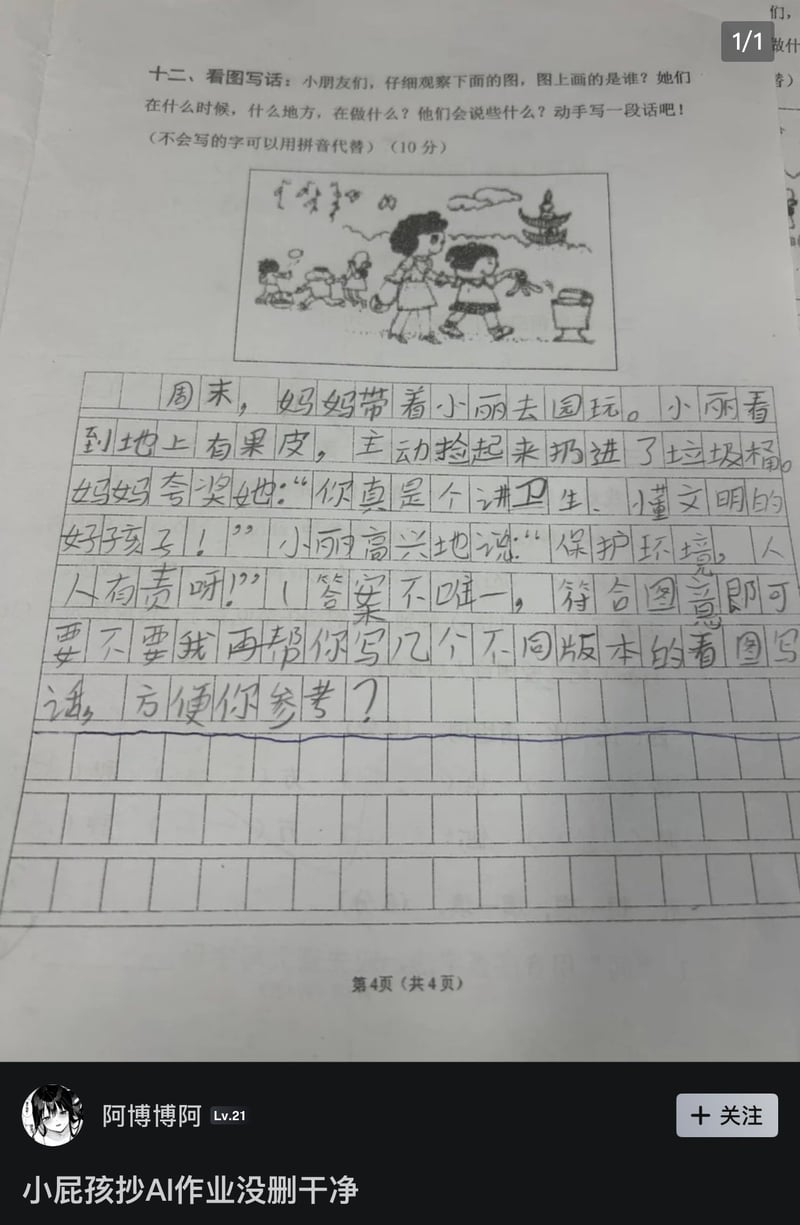 1/1
们，
做什
替）
十二、看图写话：小朋友们，仔细观察下面的图，图上画的是谁？她们
在什么时候，什么地方，在做什么？他们会说些什么？动手写一段话吧！
（不会写的字可以用拼音代替）（10分）
周末，妈妈带着小丽去园玩。小丽看
到地上有果皮，主动捡起来扔进了垃圾桶。
妈妈夸奖她：“你真是个讲卫生、懂文明的
好孩子！”小丽高兴地说：“保护环境，人
人有责呀！”（答案不唯一，符合图意即可
要不要我再帮你写几个不同版本的看图写
话，方便你参考？
第4页（共4页）
阿博博阿 Lv.21
+ 关注
小屁孩抄AI作业没删干净